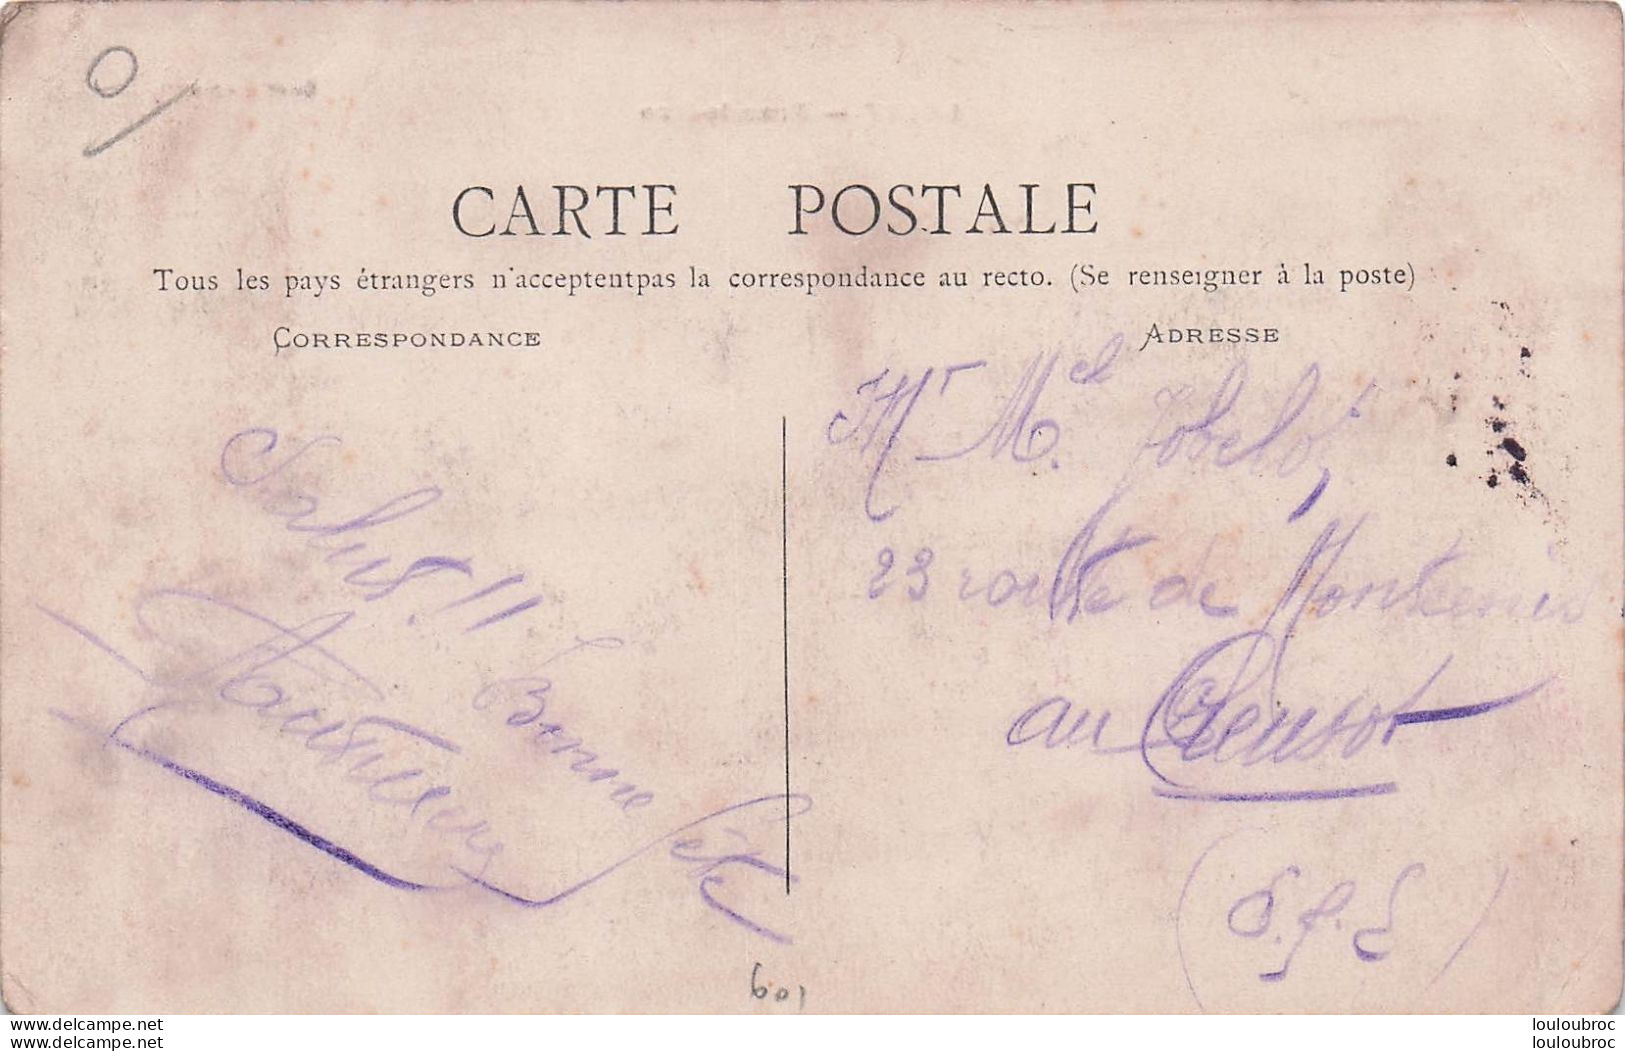 CARTE POSTALE
Tous les pays étrangers n'acceptentpas la correspondance au recto. (Se renseigner à la poste)
CORRESPONDANCE
ADRESSE
Salut !!
Bonne
fête
Mr Mel
23 route de Montcenis
au Creusot
(S. & L)
601
www.delcampe.net
louloubroc